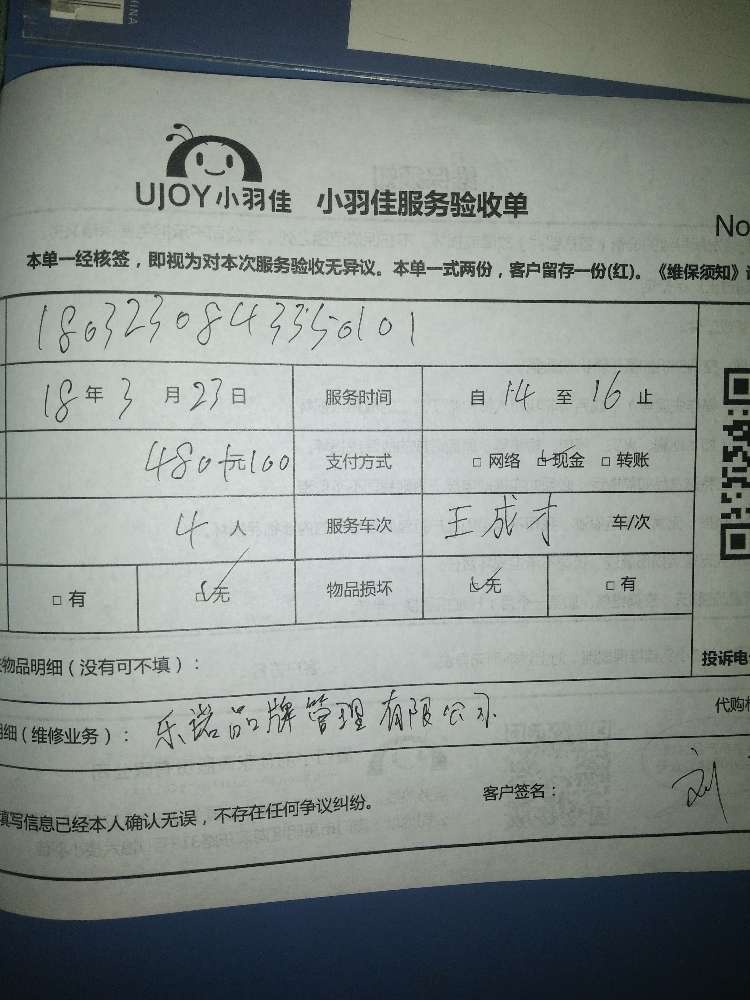 CHINA
UJOY小羽佳 小羽佳服务验收单
No
本单一经核签，即视为对本次服务验收无异议。本单一式两份，客户留存一份(红)。《维保须知》
1803230843350101
18年3月23日 服务时间 自14至16止
480+元100 支付方式 □ 网络 ☑现金 □ 转账
4人 服务车次 王成才 车/次
□ 有 ☑无 物品损坏 ☑无 □ 有
物品明细（没有可不填）： 投诉电
细（维修业务）：乐诺品牌管理有限公司 代购
填写信息已经本人确认无误，不存在任何争议纠纷。 客户签名： 刘